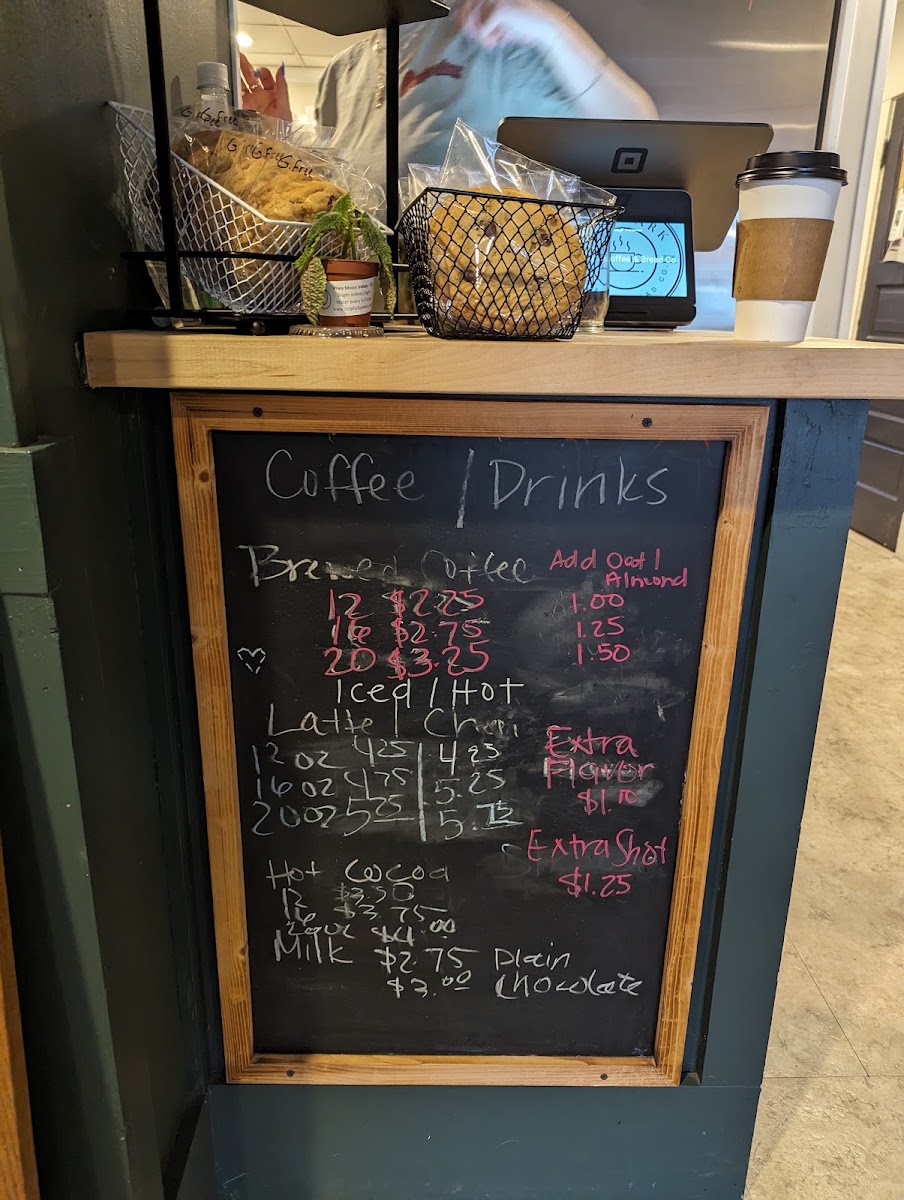 G.Free G.Free G.Free
Coffee & Bread Co
Coffee / Drinks
Brewed Coffee
12 $2.25
16 $2.75
20 $3.25
Add Oat/
Almond
1.00
1.25
1.50
Iced / Hot
Latte / Chai
12 oz 4.25 | 4.25
16 oz 4.75 | 5.25
20 oz 5.25 | 5.75
Extra
Flavor
Extra Shot
$1.25
Hot Cocoa
12 $3.50
16 $3.75
$4.00
Milk $2.75 Plain
$3.00 Chocolate